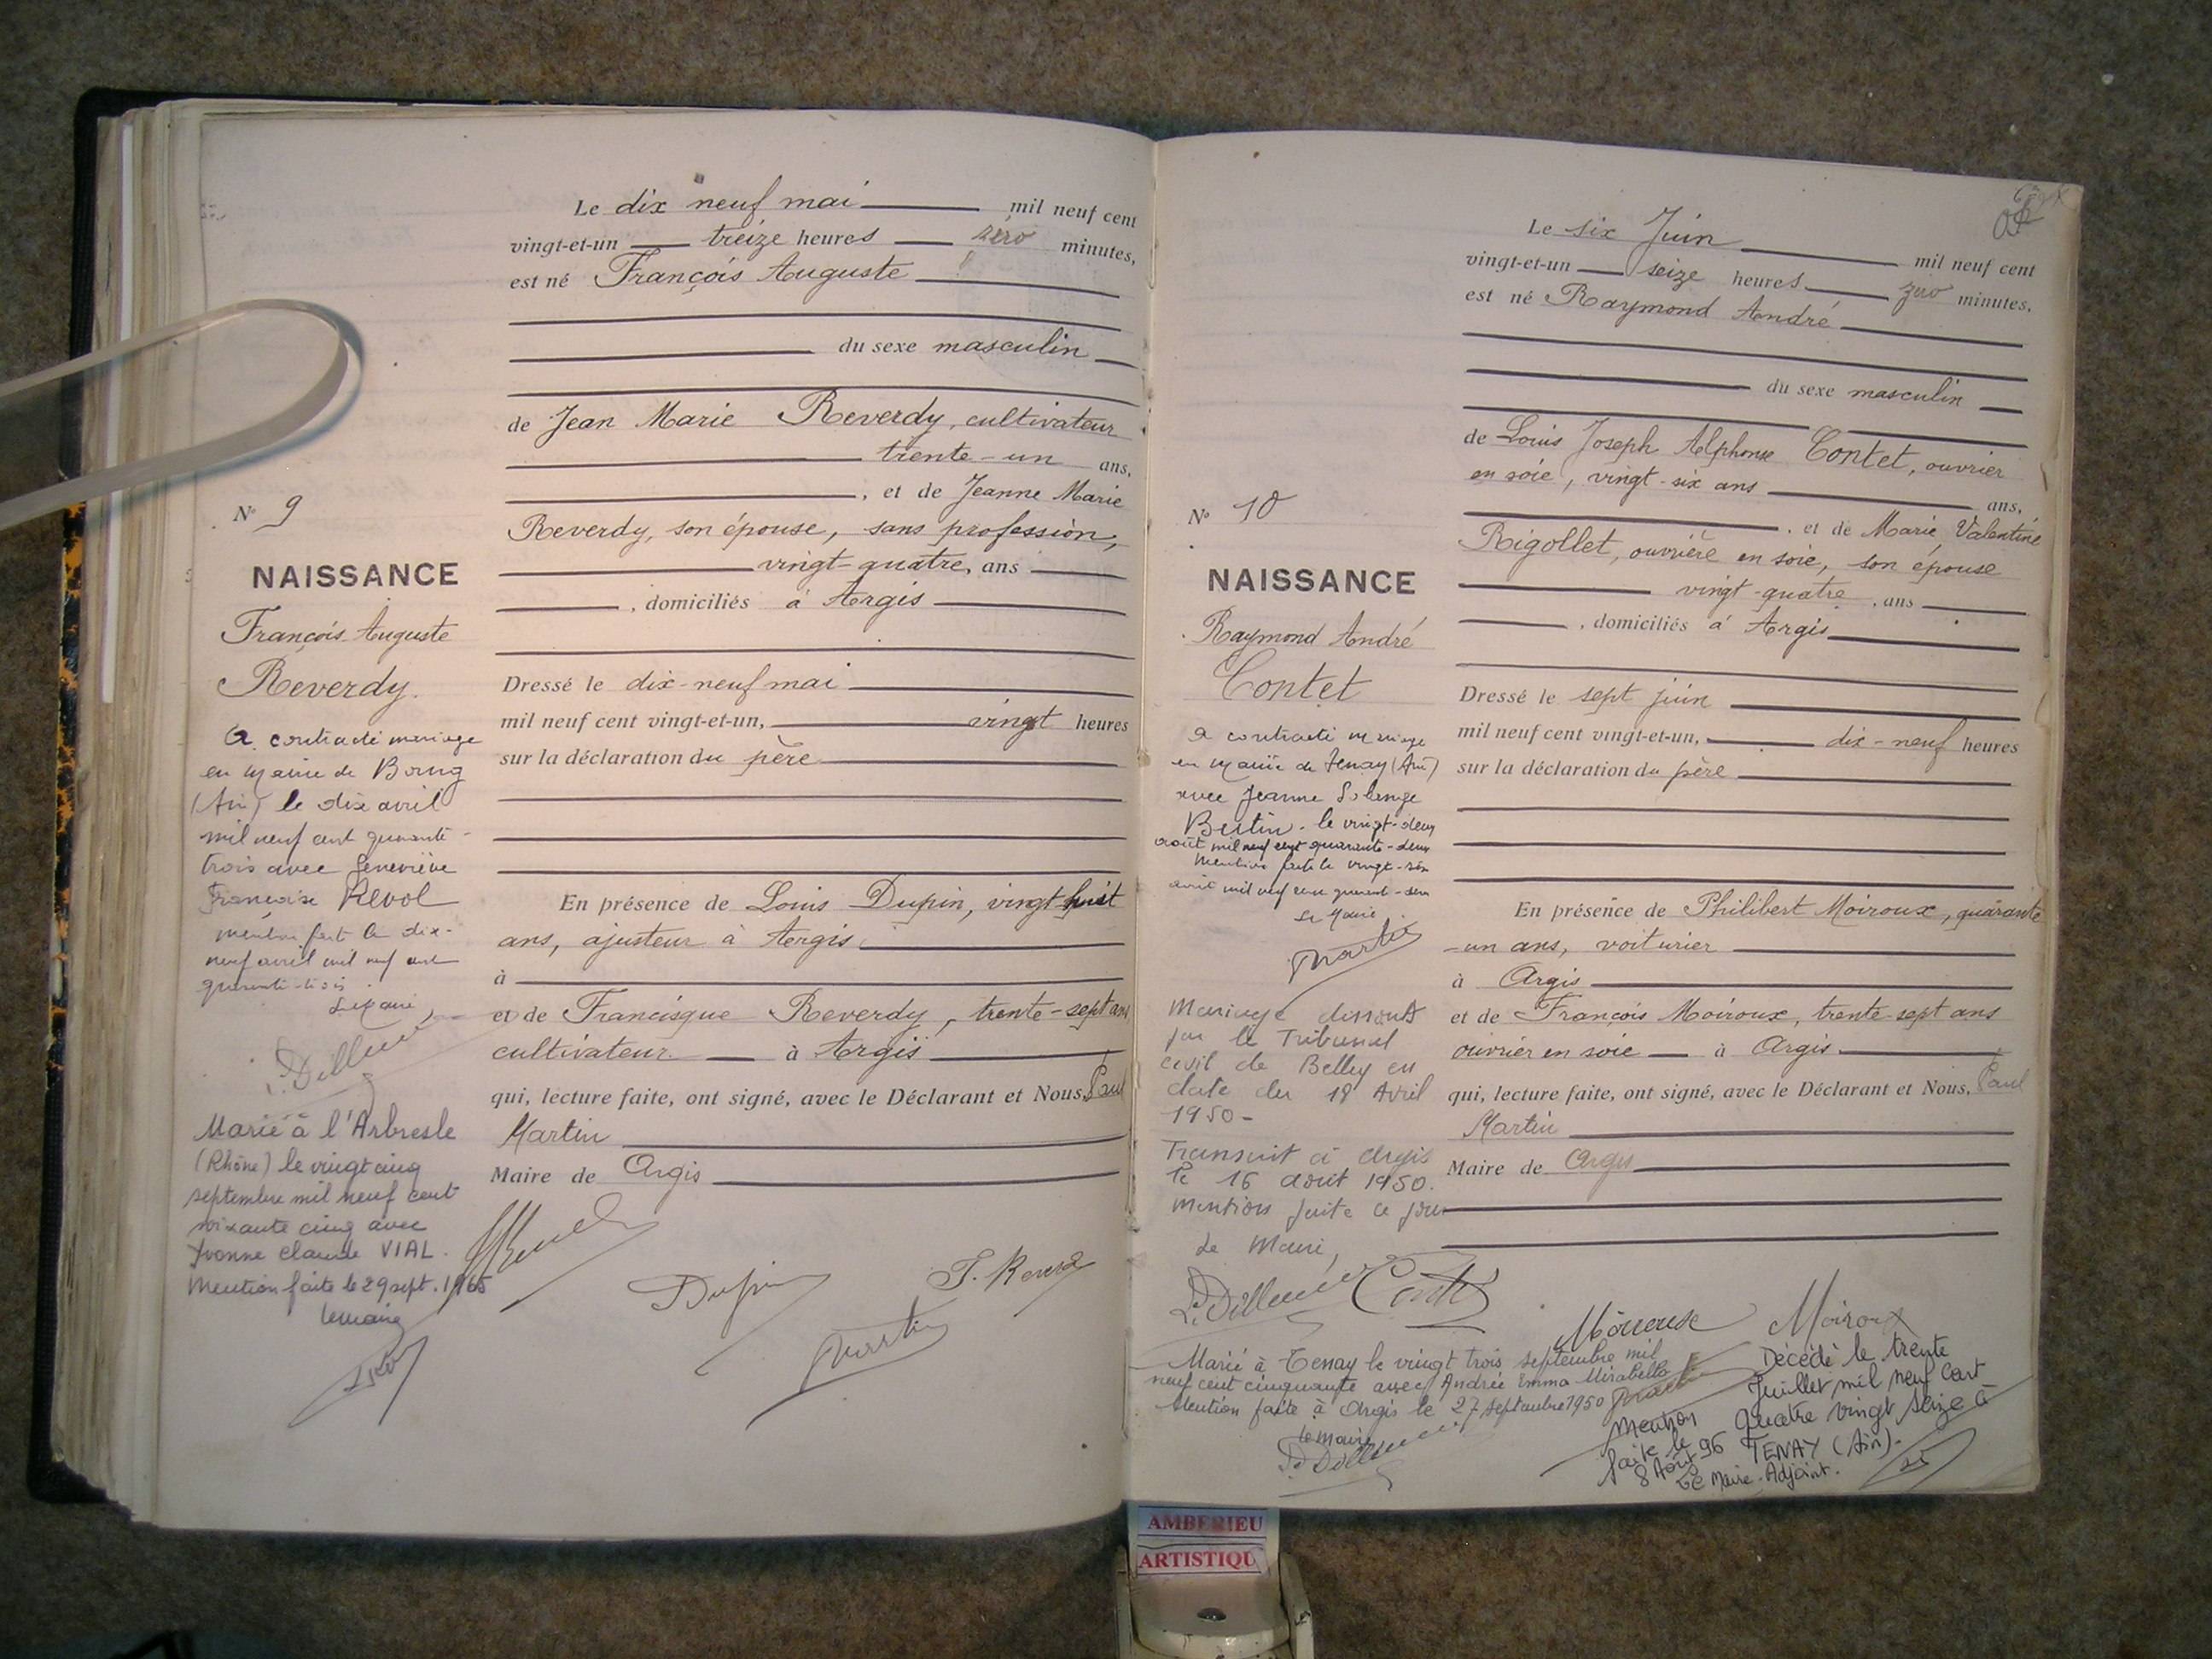 Le dix neuf mai mil neuf cent
vingt-et-un treize heures zéro minutes,
est né François Auguste
du sexe masculin
de Jean Marie Reverdy, cultivateur
trente-un ans,
, et de Jeanne Marie
Reverdy, son épouse, sans profession,
vingt-quatre, ans
, domiciliés à Argis
Dressé le dix-neuf mai
mil neuf cent vingt-et-un, vingt heures
sur la déclaration du père
En présence de Louis Dupin, vingt huit
ans, ajusteur à Argis
à
et de Francisque Reverdy, trente-sept ans
cultivateur à Argis
qui, lecture faite, ont signé, avec le Déclarant et Nous, Paul
Martin
Maire de Argis
Dupin
F. Rever
Martin
N° 9
NAISSANCE
François Auguste
Reverdy.
A contracté mariage
en mairie de Bourg
(Ain) le dix avril
mil neuf cent quarante-
trois avec Geneviève
Françoise Revol
mention faite le dix-
neuf avril mil neuf cent
quarante-trois.
Le Maire,
Marié à l'Arbresle
(Rhône) le vingt cinq
septembre mil neuf cent
soixante cinq avec
Yvonne Claude VIAL.
Mention faite le 29 sept. 1965
Le maire
Le six Juin mil neuf cent
vingt-et-un seize heures zéro minutes,
est né Raymond André
du sexe masculin
de Louis Joseph Alphonse Contet, ouvrier
en soie, vingt-six ans ans,
, et de Marie, Valentine
Rigollet, ouvrière en soie, son épouse
vingt-quatre, ans
, domiciliés à Argis
Dressé le sept juin
mil neuf cent vingt-et-un, dix-neuf heures
sur la déclaration du père
En présence de Philibert Moiroux, quarante
-un ans, voiturier
à Argis
et de François Moiroux, trente sept ans
ouvrier en soie à Argis
qui, lecture faite, ont signé, avec le Déclarant et Nous, Paul
Martin
Maire de Argis
N° 10
NAISSANCE
Raymond André
Contet
a contracté mariage
en mairie de Tenay (Ain)
avec Jeanne Solange
Bertin. le vingt-deux
août mil neuf cent quarante-deux
Mention faite le vingt-
mil neuf cent quarante-deux
Le Maire
Martin
Mariage dissout
par le Tribunal
civil de Belley en
date du 18 Avril
1950-
Transcrit à Argis
le 16 août 1950.
Mention faite ce jour
Le Maire,
Moiroux
Marié à Tenay le vingt trois septembre mil
neuf cent cinquante avec Andrée Emma Mirabella
Mention faite à Argis le 27 septembre 1950
le maire
Décédé le trente
Juillet mil neuf cent
quatre vingt seize à
TENAY (Ain).
Mention
faite le
8 Août 96
Le Maire-Adjoint.
AMBERIEU
ARTISTIQU